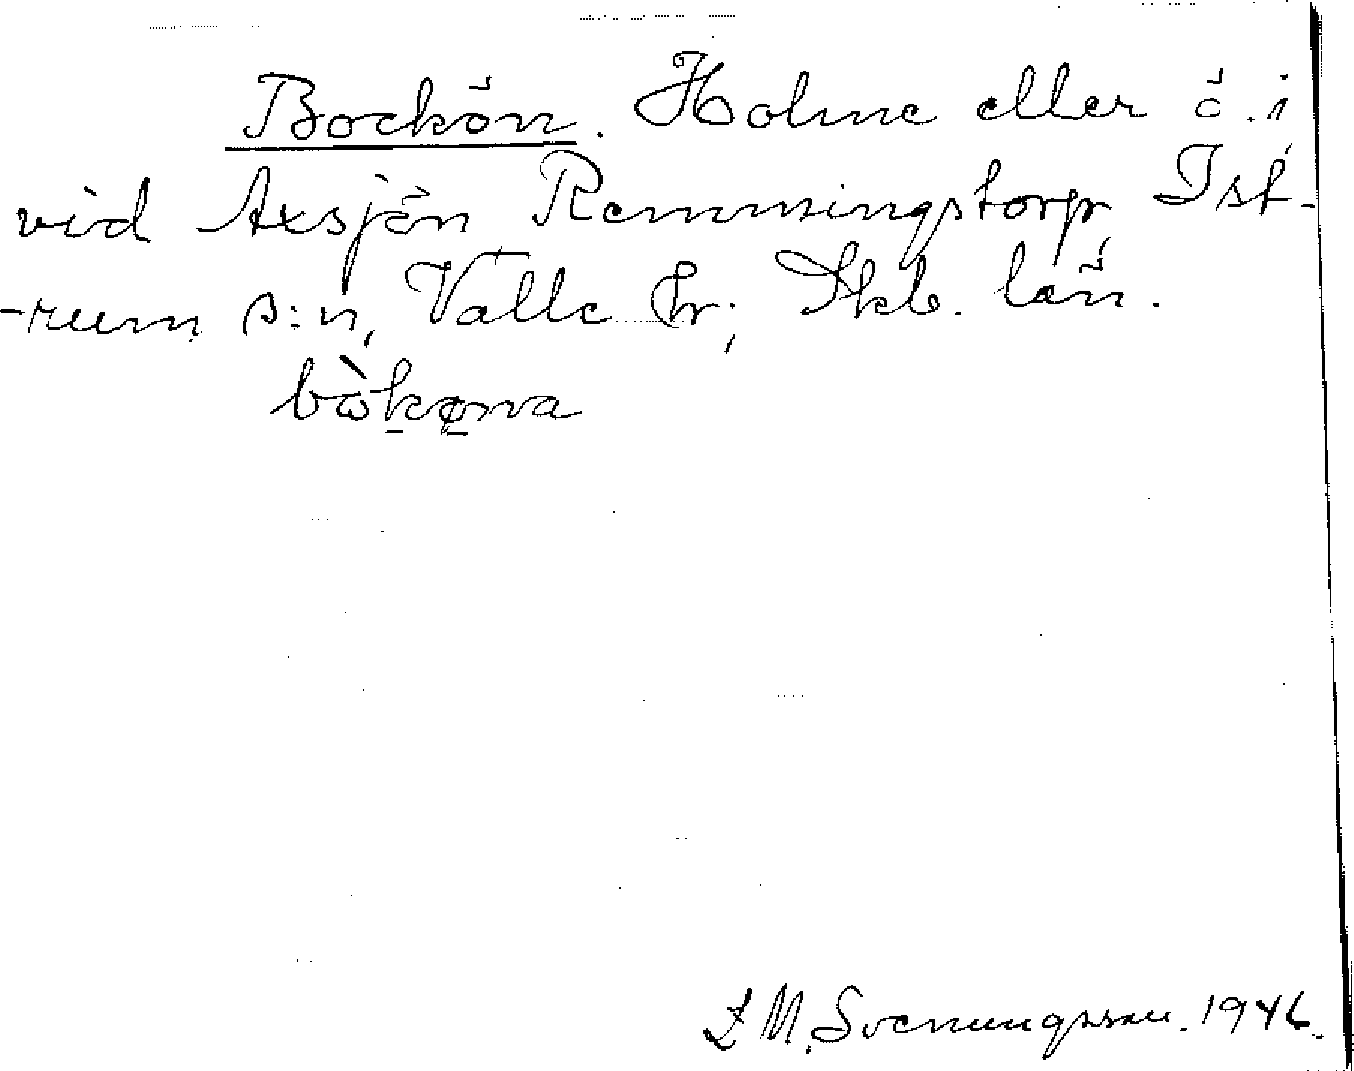 Bockön. Holme eller ö. i
vid Axsjön Remmingstorp, Ist-
-rum s:n, Valle hr; Skb. län.
L M. Svenungsson. 1946.